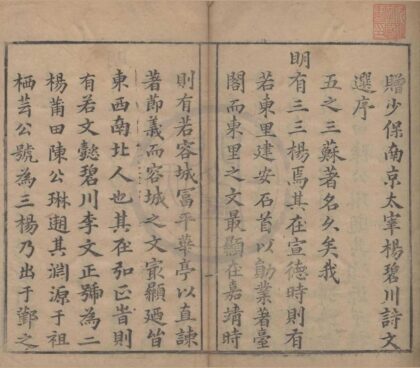 贈少保南京太宰楊碧川詩文
選序
五之三蘇著名久矣我
明有三三楊焉其在宣德時則有
若東里建安石首以勛業著臺
閣而東里之文最顯在嘉靖時
則有若容城富平華亭以直諫
著節義而容城之文㝡顯廼皆
東西南北人也其在弘正昔則
有若文懿碧川李文正號為二
楊莆田陳公琳遡其淵源于祖
栖芸公號為三楊乃出于鄞之